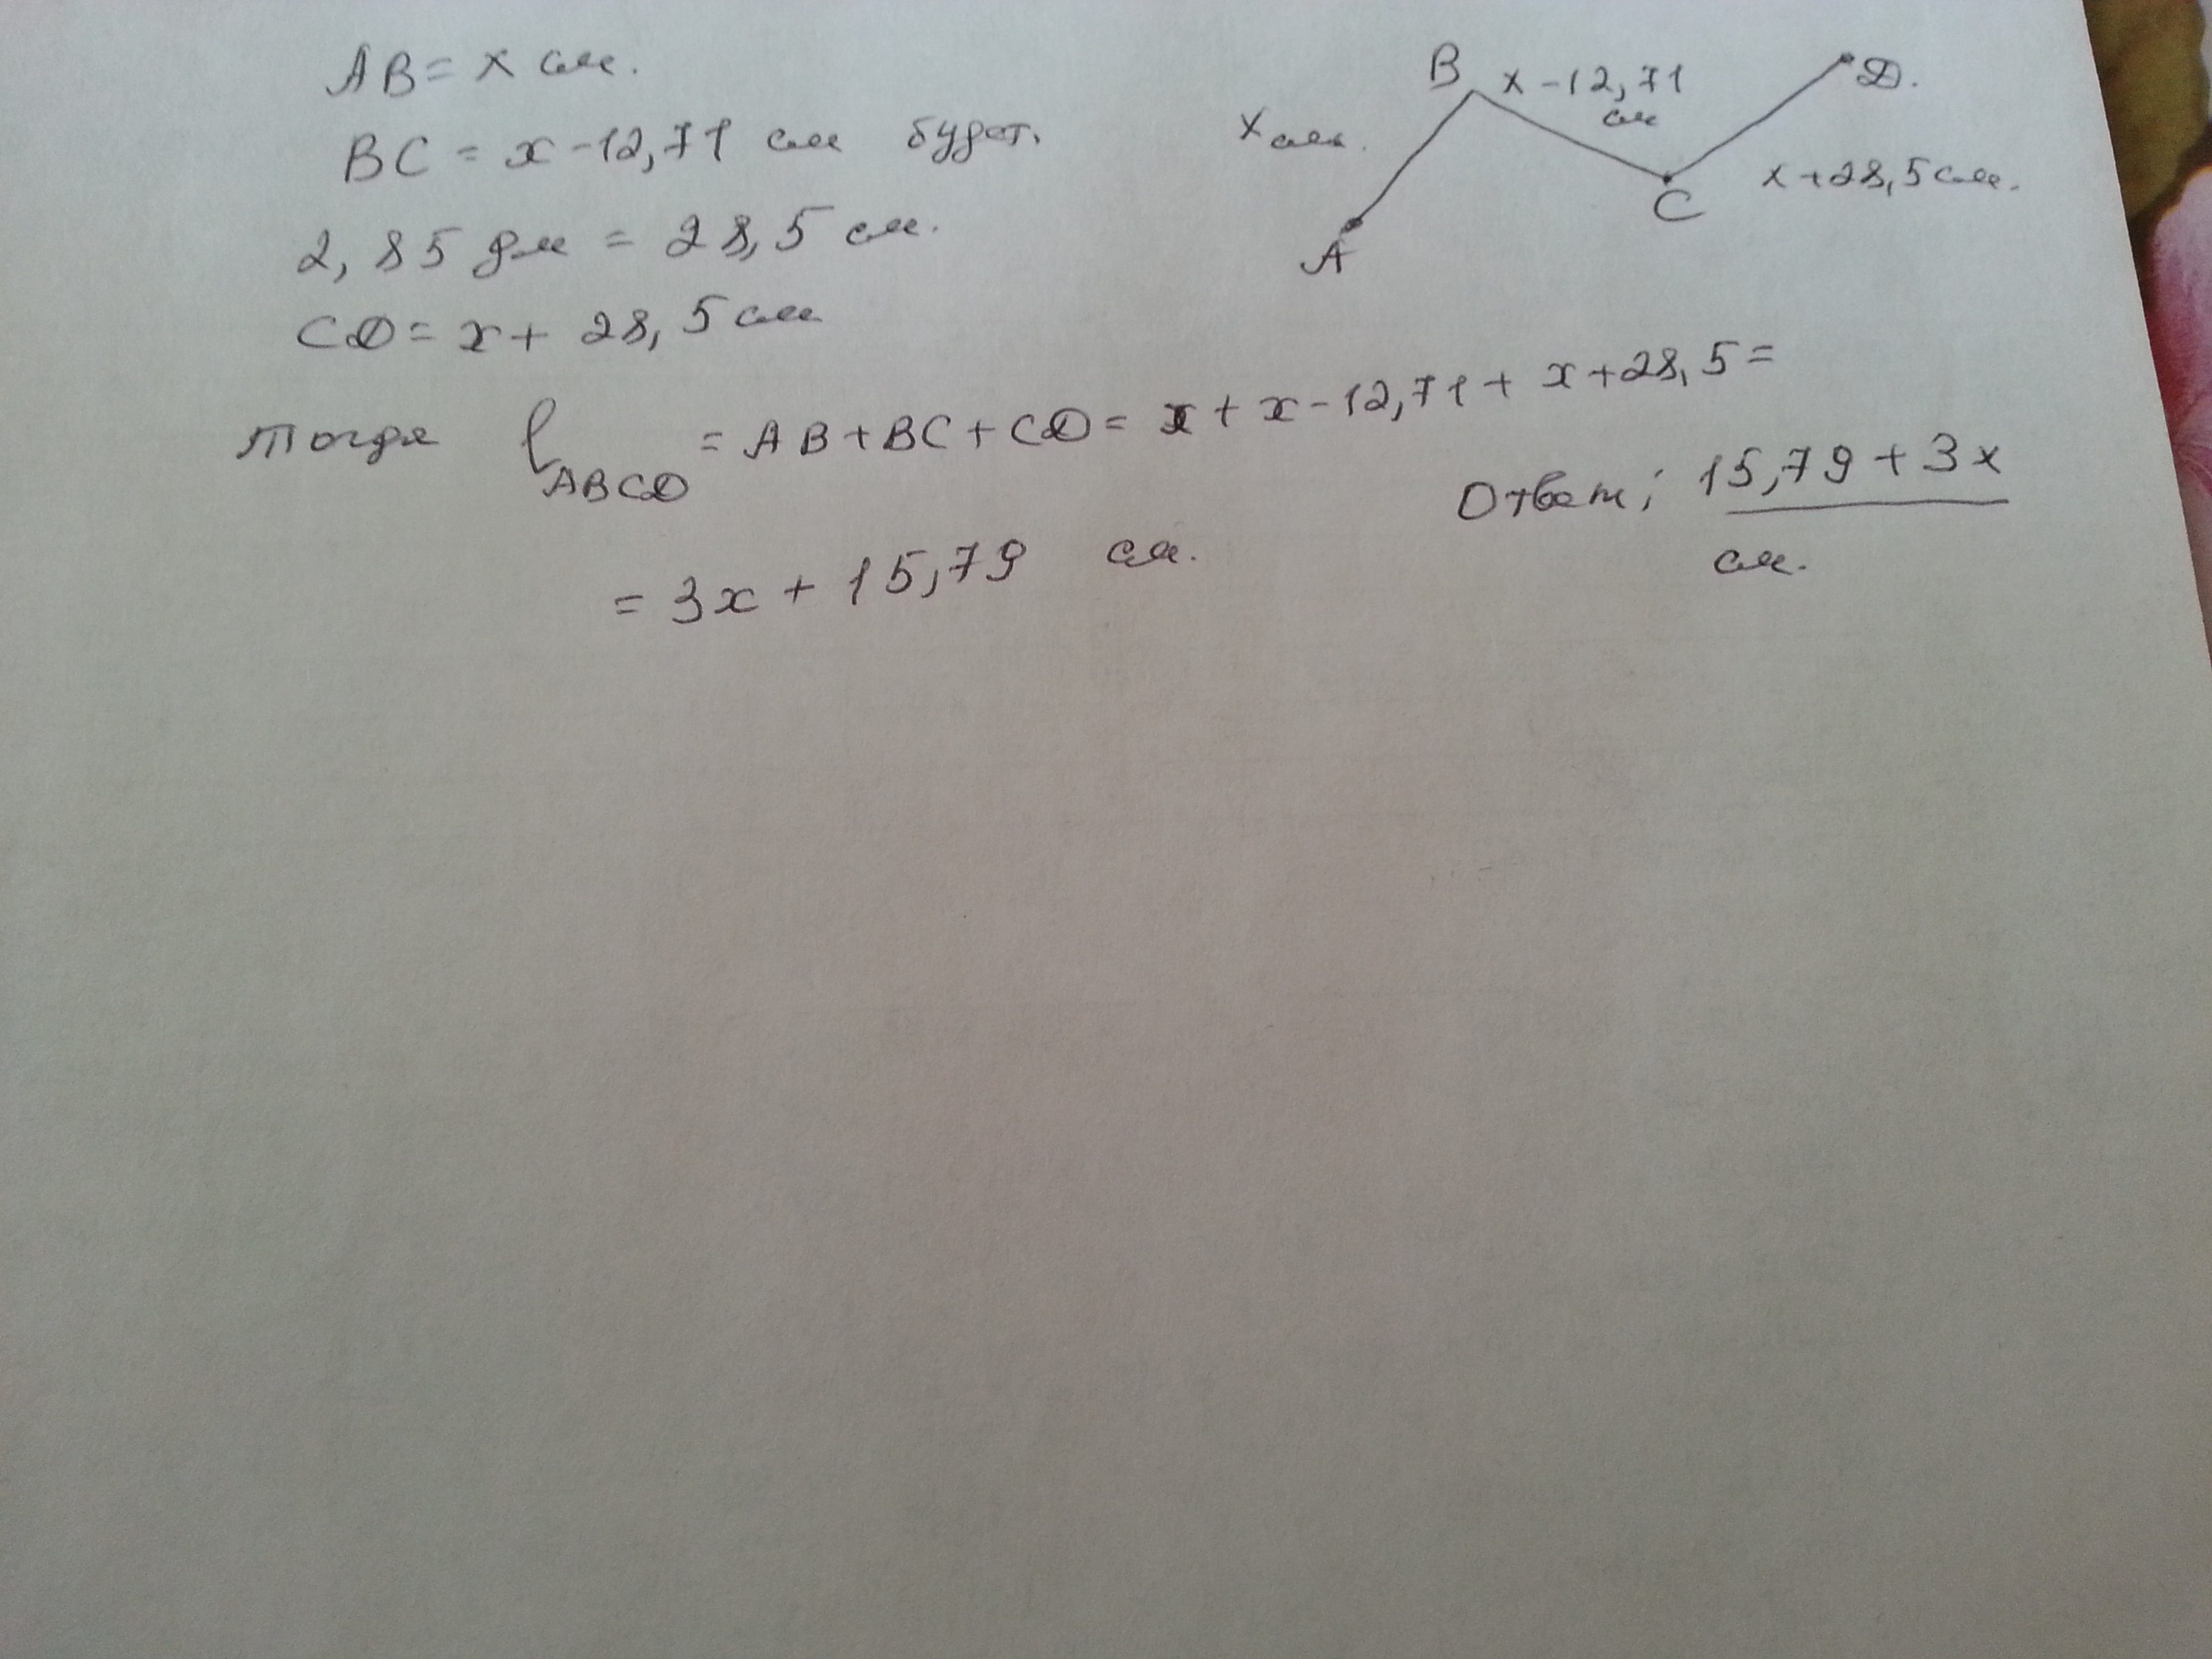 AB = x см.
BC = x - 12,71 см будет.
2,85 дм = 28,5 см.
CD = x + 28,5 см
B x - 12,71 см
D.
x см.
x + 28,5 см.
C
A
тогда ℓ ABCD = AB + BC + CD = x + x - 12,71 + x + 28,5 =
= 3x + 15,79 см.
Ответ: 15,79 + 3x
см.